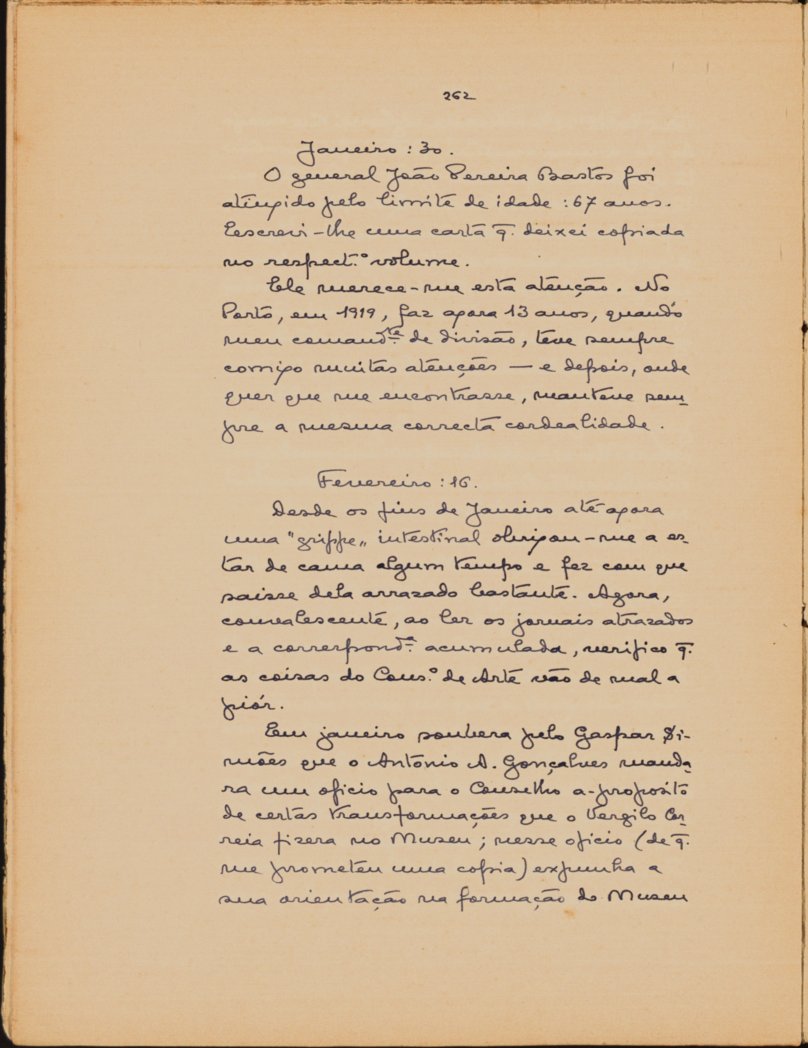 262
Janeiro : 30.
O general João Pereira Bastos foi
atingido pelo limite de idade : 67 anos.
Escrevi-lhe uma carta q. deixei copiada
no respect.º volume.
Ele merece-me esta atenção. No
Porto, em 1919, faz agora 13 anos, quando
meu comand.te de divisão, teve sempre
comigo muitas atenções — e depois, onde
quer que me encontrasse, manteve sem-
pre a mesma correcta cordealidade.
Fevereiro : 16.
Desde os fins de Janeiro até agora
uma "grippe„ intestinal obrigou-me a es-
tar de cama algum tempo e fez com que
saisse dela arrazado bastante. Agora,
convalescente, ao ler os jornais atrazados
e a correspond.ª acumulada, verifico q.
as coisas do Cons.º de Arte vão de mal a
piór.
Em janeiro soubera pelo Gaspar Si-
mões que o António A. Gonçalves manda-
ra um oficio para o Conselho a-propósito
de certas transformações que o Vergilo Cor-
reia fizera no Museu; nesse oficio (de q.
me prometeu uma copia) expunha a
sua orientação na formação do Museu